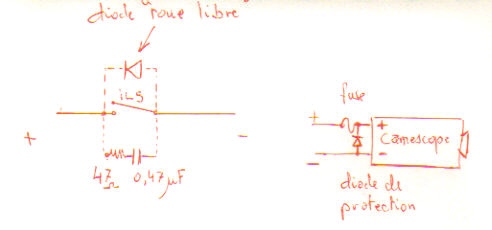 diode roue libre
iLS
+
-
47Ω 0,47µF
fuse
+
-
+
-
camescope
diode de
protection